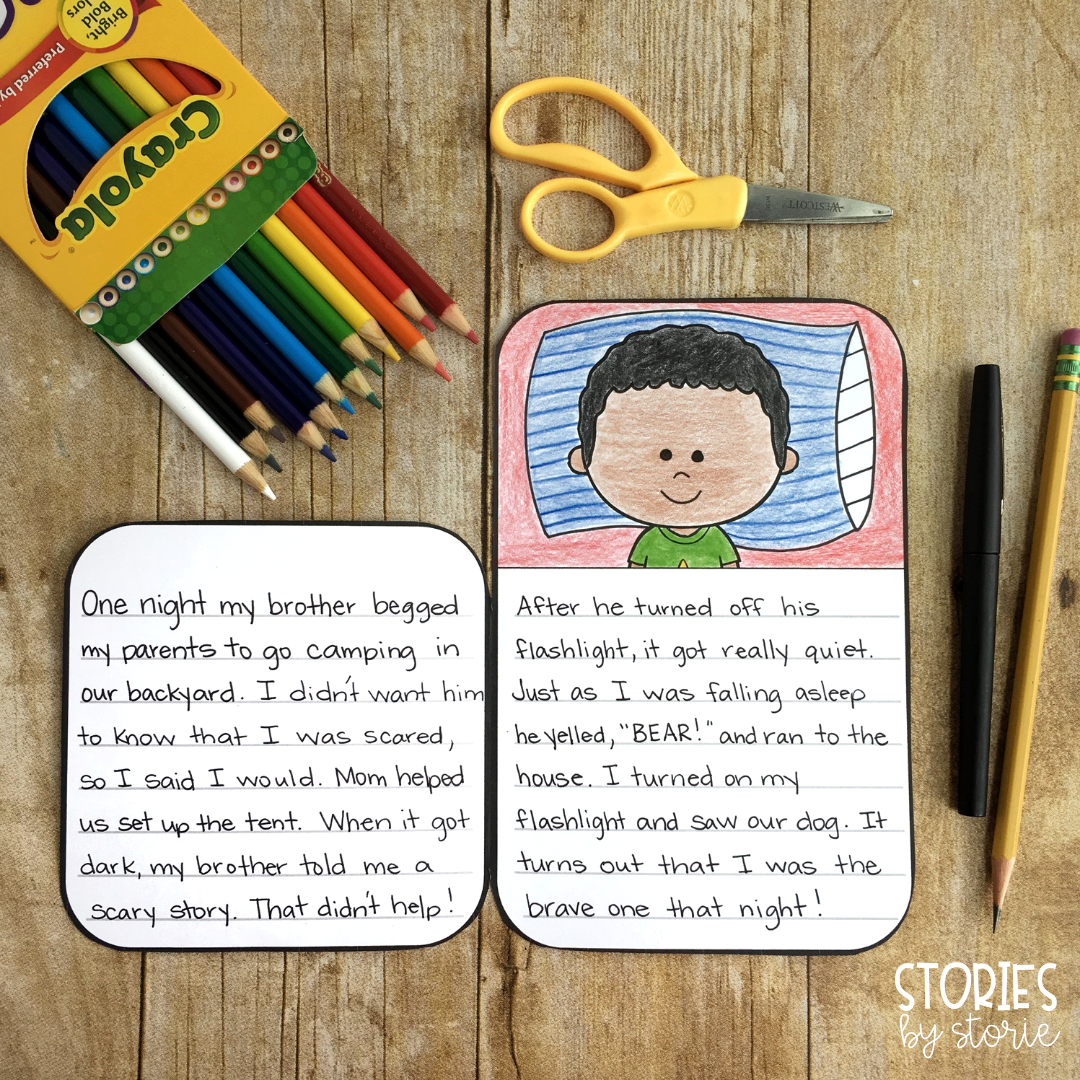 Bright,
Bold
Colors
Preferred by
Crayola
WESTCOTT
One night my brother begged
my parents to go camping in
our backyard. I didn't want him
to know that I was scared,
so I said I would. Mom helped
us set up the tent. When it got
dark, my brother told me a
scary story. That didn't help!
After he turned off his
flashlight, it got really quiet.
Just as I was falling asleep
he yelled, "BEAR!" and ran to the
house. I turned on my
flashlight and saw our dog. It
turns out that I was the
brave one that night!
STORIES
by storie